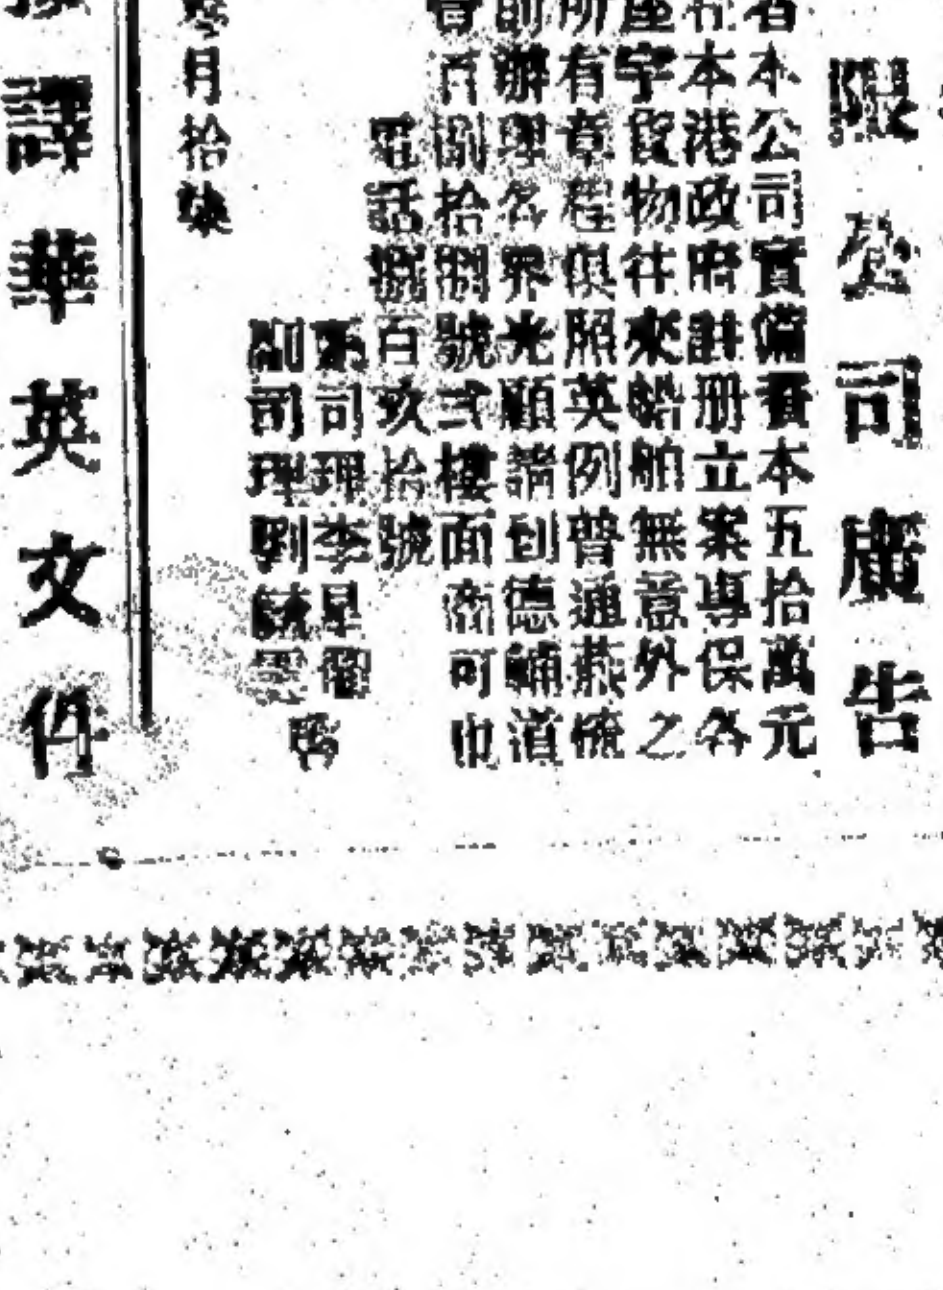 限公司廣告
者本公司實備資本五拾萬元
在本港政府註册立案專保各
屋宇貨物往來船舶無意外之
所有章程俱照英例普通燕梳
前辦理各界光顧請到德輔道
百捌拾捌號弍樓面商可也
電話捌百玖拾號
司理李星衢
副司理劉 啓
月拾柒
譯華英文件